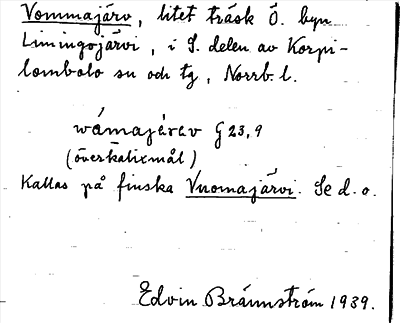 Vommajärv, litet träsk Ö. byn
Limingojärvi, i S. delen av Korpi-
lombolo sn och tg, Norrb. l.
wåmajä̀rav G 23,9
(överkalixmål)
Kallas på finska Vuomajärvi. Se d. o.
Edvin Brännström 1939.